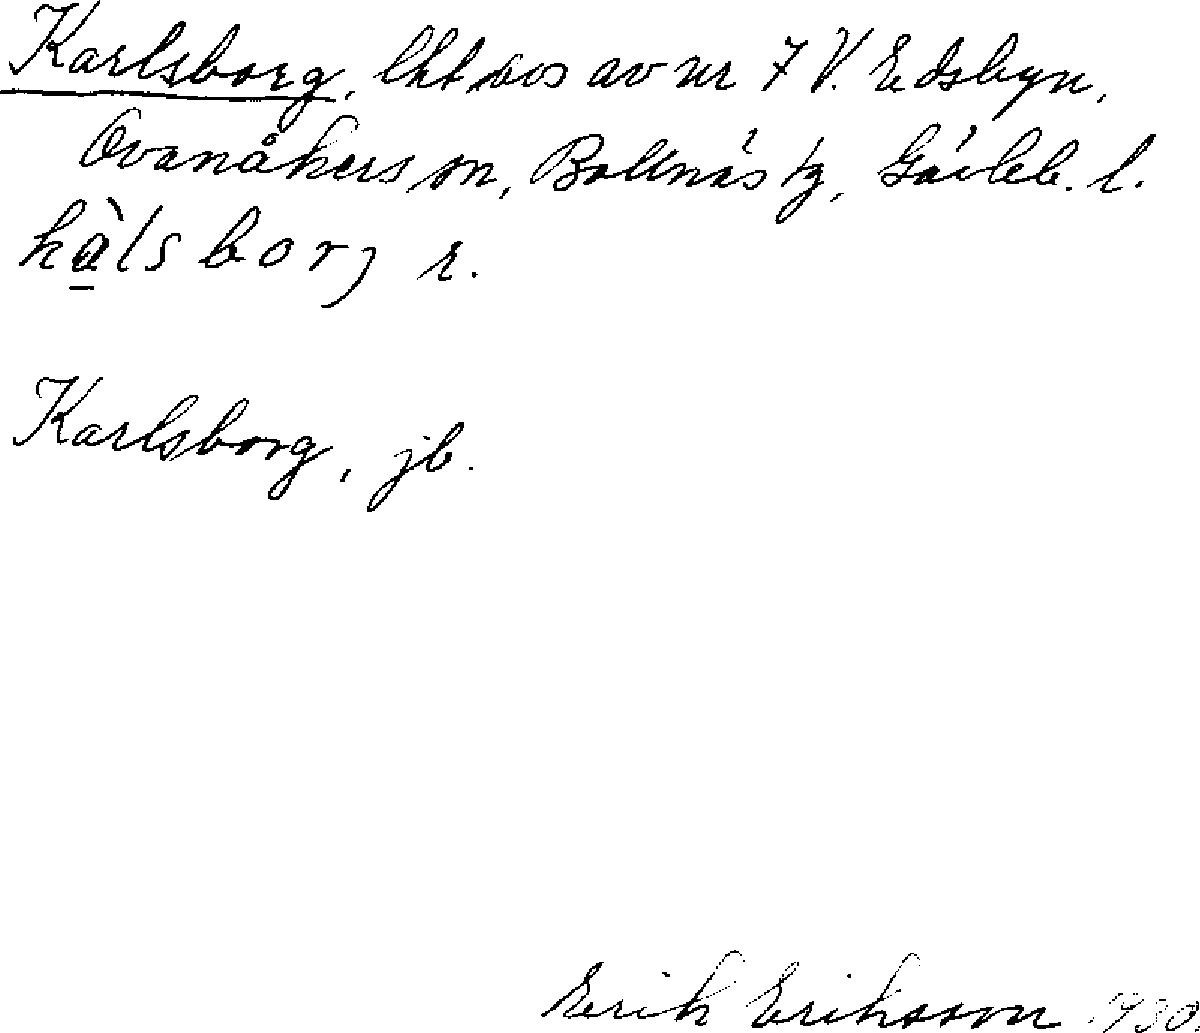 Karlsborg, lht, avs av nr 7 V. Edsbyn,
Ovanåkers sn, Bollnäs tg, Gävleb. l.
kàlsborj r.
Karlsborg, jb.
Erik Eriksson 1930.